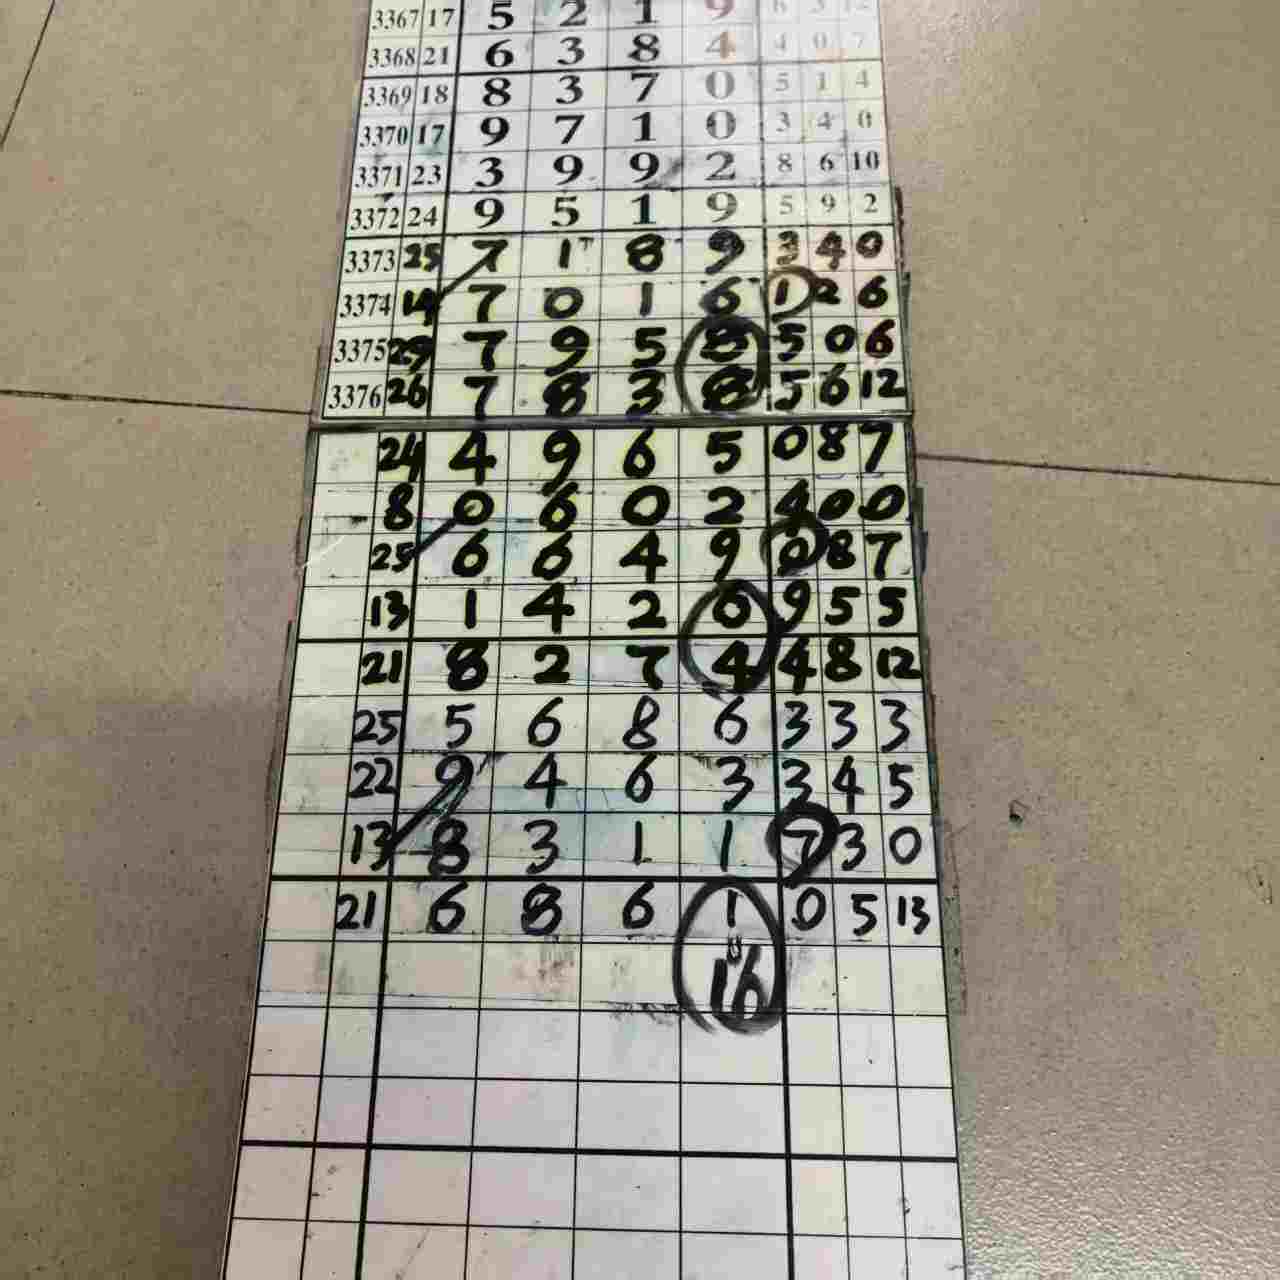 3367 17 5 2 1 9 6 3 12
3368 21 6 3 8 4 4 0 7
3369 18 8 3 7 0 5 1 4
3370 17 9 7 1 0 3 4 0
3371 23 3 9 9 2 8 6 10
3372 24 9 5 1 9 5 9 2
3373 25 7 1 8 9 3 4 0
3374 14 7 0 1 6 1 2 6
3375 29 7 9 5 8 5 0 6
3376 26 7 8 3 8 5 6 12
24 4 9 6 5 0 8 7
8 0 6 0 2 4 0 0
25 6 6 4 9 0 8 7
13 1 4 2 6 9 5 5
21 8 2 7 4 4 8 12
25 5 6 8 6 3 3 3
22 9 4 6 3 3 4 5
13 8 3 1 1 7 3 0
21 6 8 6 1 0 5 13
16